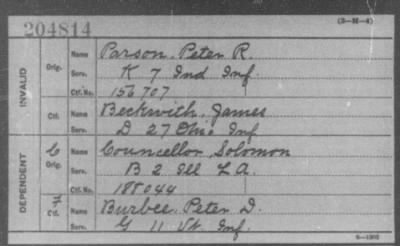 204814 (3-M-4)
INVALID Orig. Name Parson, Peter R.
Serv. K 7 Ind Inf.
Ctf. No. 156707
Ctf. Name Beckwith, James
Serv. D 27 Ohio Inf
DEPENDENT C Orig. Name Councellor, Solomon
Serv. B 2 Ill L A.
Ctf. No. 185044
F Ctf. Name Burbee, Peter D.
Serv. G 11 Vt. Inf.